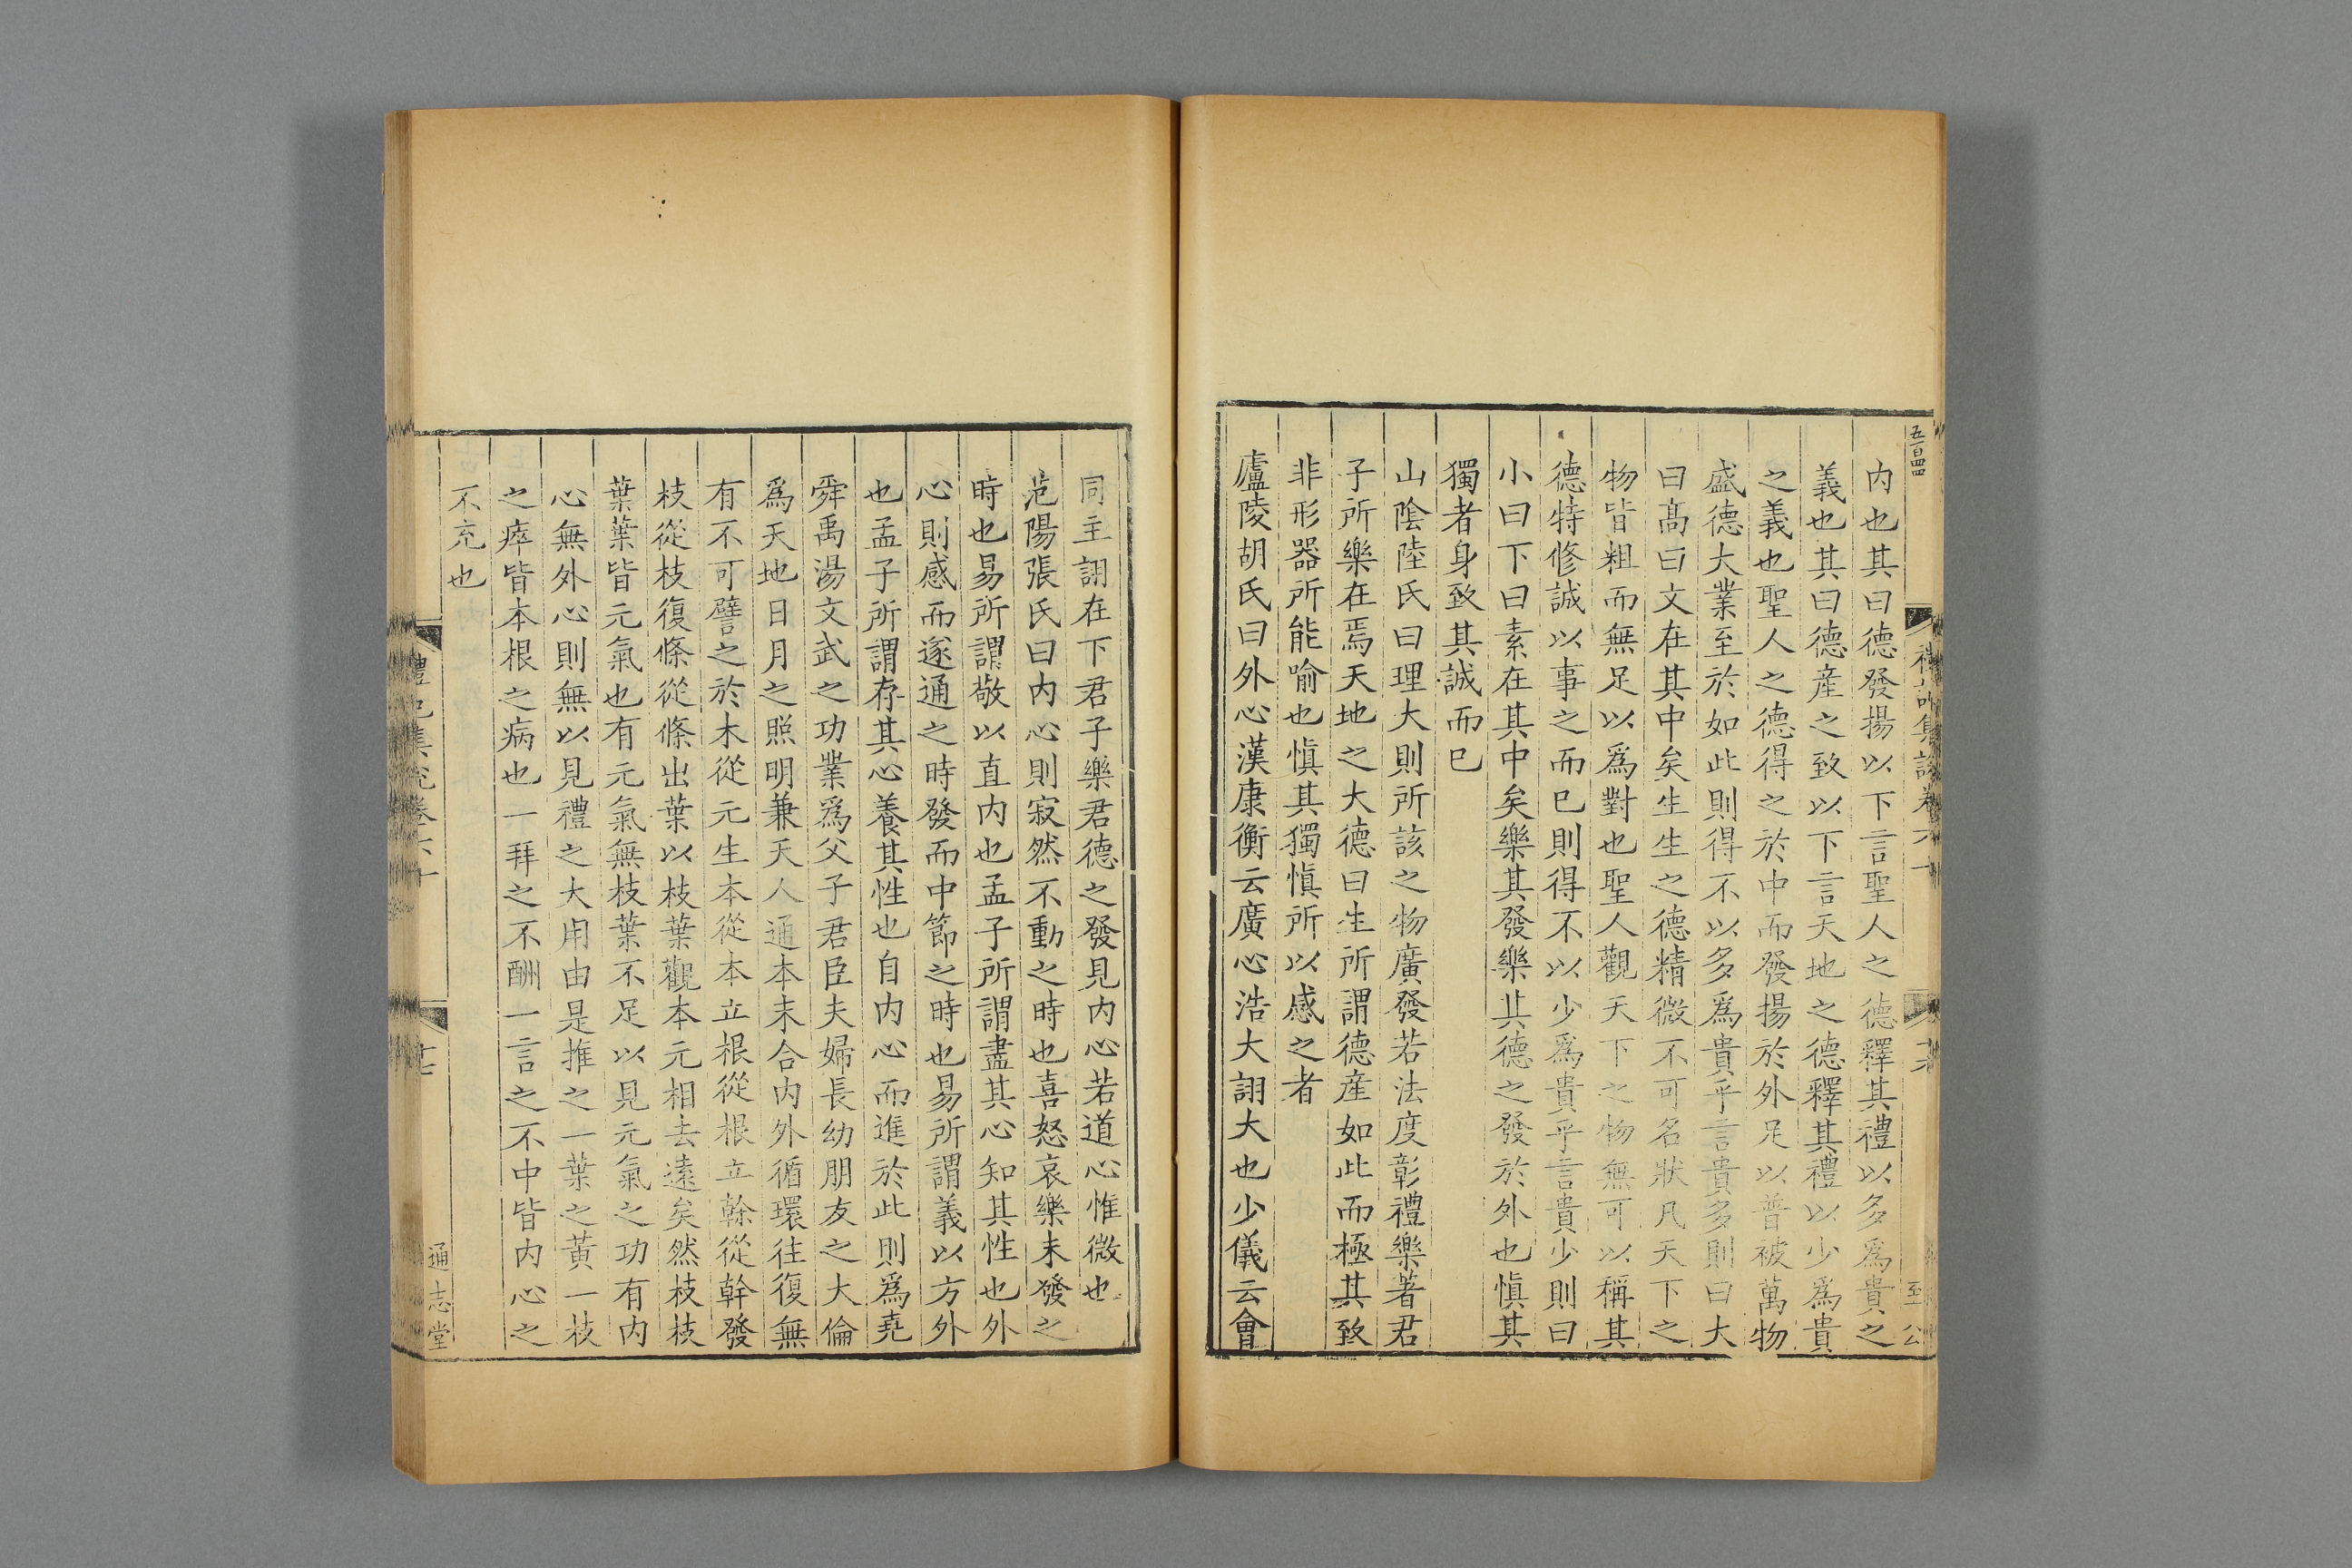 五百四四
内也其曰德發揚以下言聖人之德釋其禮以多爲貴之
義也其曰德産之致以下言天地之德釋其禮以少爲貴
之義也聖人之德得之於中而發揚於外足以普被萬物
盛德大業至於如此則得不以多爲貴乎言貴多則曰大
曰高曰文在其中矣生生之德精微不可名狀凡天下之
物皆粗而無足以爲對也聖人觀天下之物無可以稱其
德特修誠以事之而已則得不以少爲貴乎言貴少則曰
小曰下曰素在其中矣樂其發樂其德之發於外也愼其
獨者身致其誠而已
山陰陸氏曰理大則所該之物廣發若法度彰禮樂著君
子所樂在焉天地之大德曰生所謂德産如此而極其致
非形器所能喻也愼其獨愼所以感之者
廬陵胡氏曰外心漢康衡云廣心浩大詡大也少儀云會
同主詡在下君子樂君德之發見内心若道心惟微也
范陽張氏曰内心則寂然不動之時也喜怒哀樂未發之
時也易所謂敬以直内也孟子所謂盡其心知其性也外
心則感而遂通之時發而中節之時也易所謂義以方外
也孟子所謂存其心養其性也自内心而進於此則爲堯
舜禹湯文武之功業爲父子君臣夫婦長幼朋友之大倫
爲天地日月之照明兼天人通本末合内外循環往復無
有不可譬之於木從元生本從本立根從根立榦從幹發
枝從枝復條從條出葉以枝葉觀本元相去遠矣然枝枝
葉葉皆元氣也有元氣無枝葉不足以見元氣之功有内
心無外心則無以見禮之大用由是推之一葉之黃一枝
之瘁皆本根之病也一拜之不酬一言之不中皆内心之
不充也
禮記集說卷六十
十七
通志堂